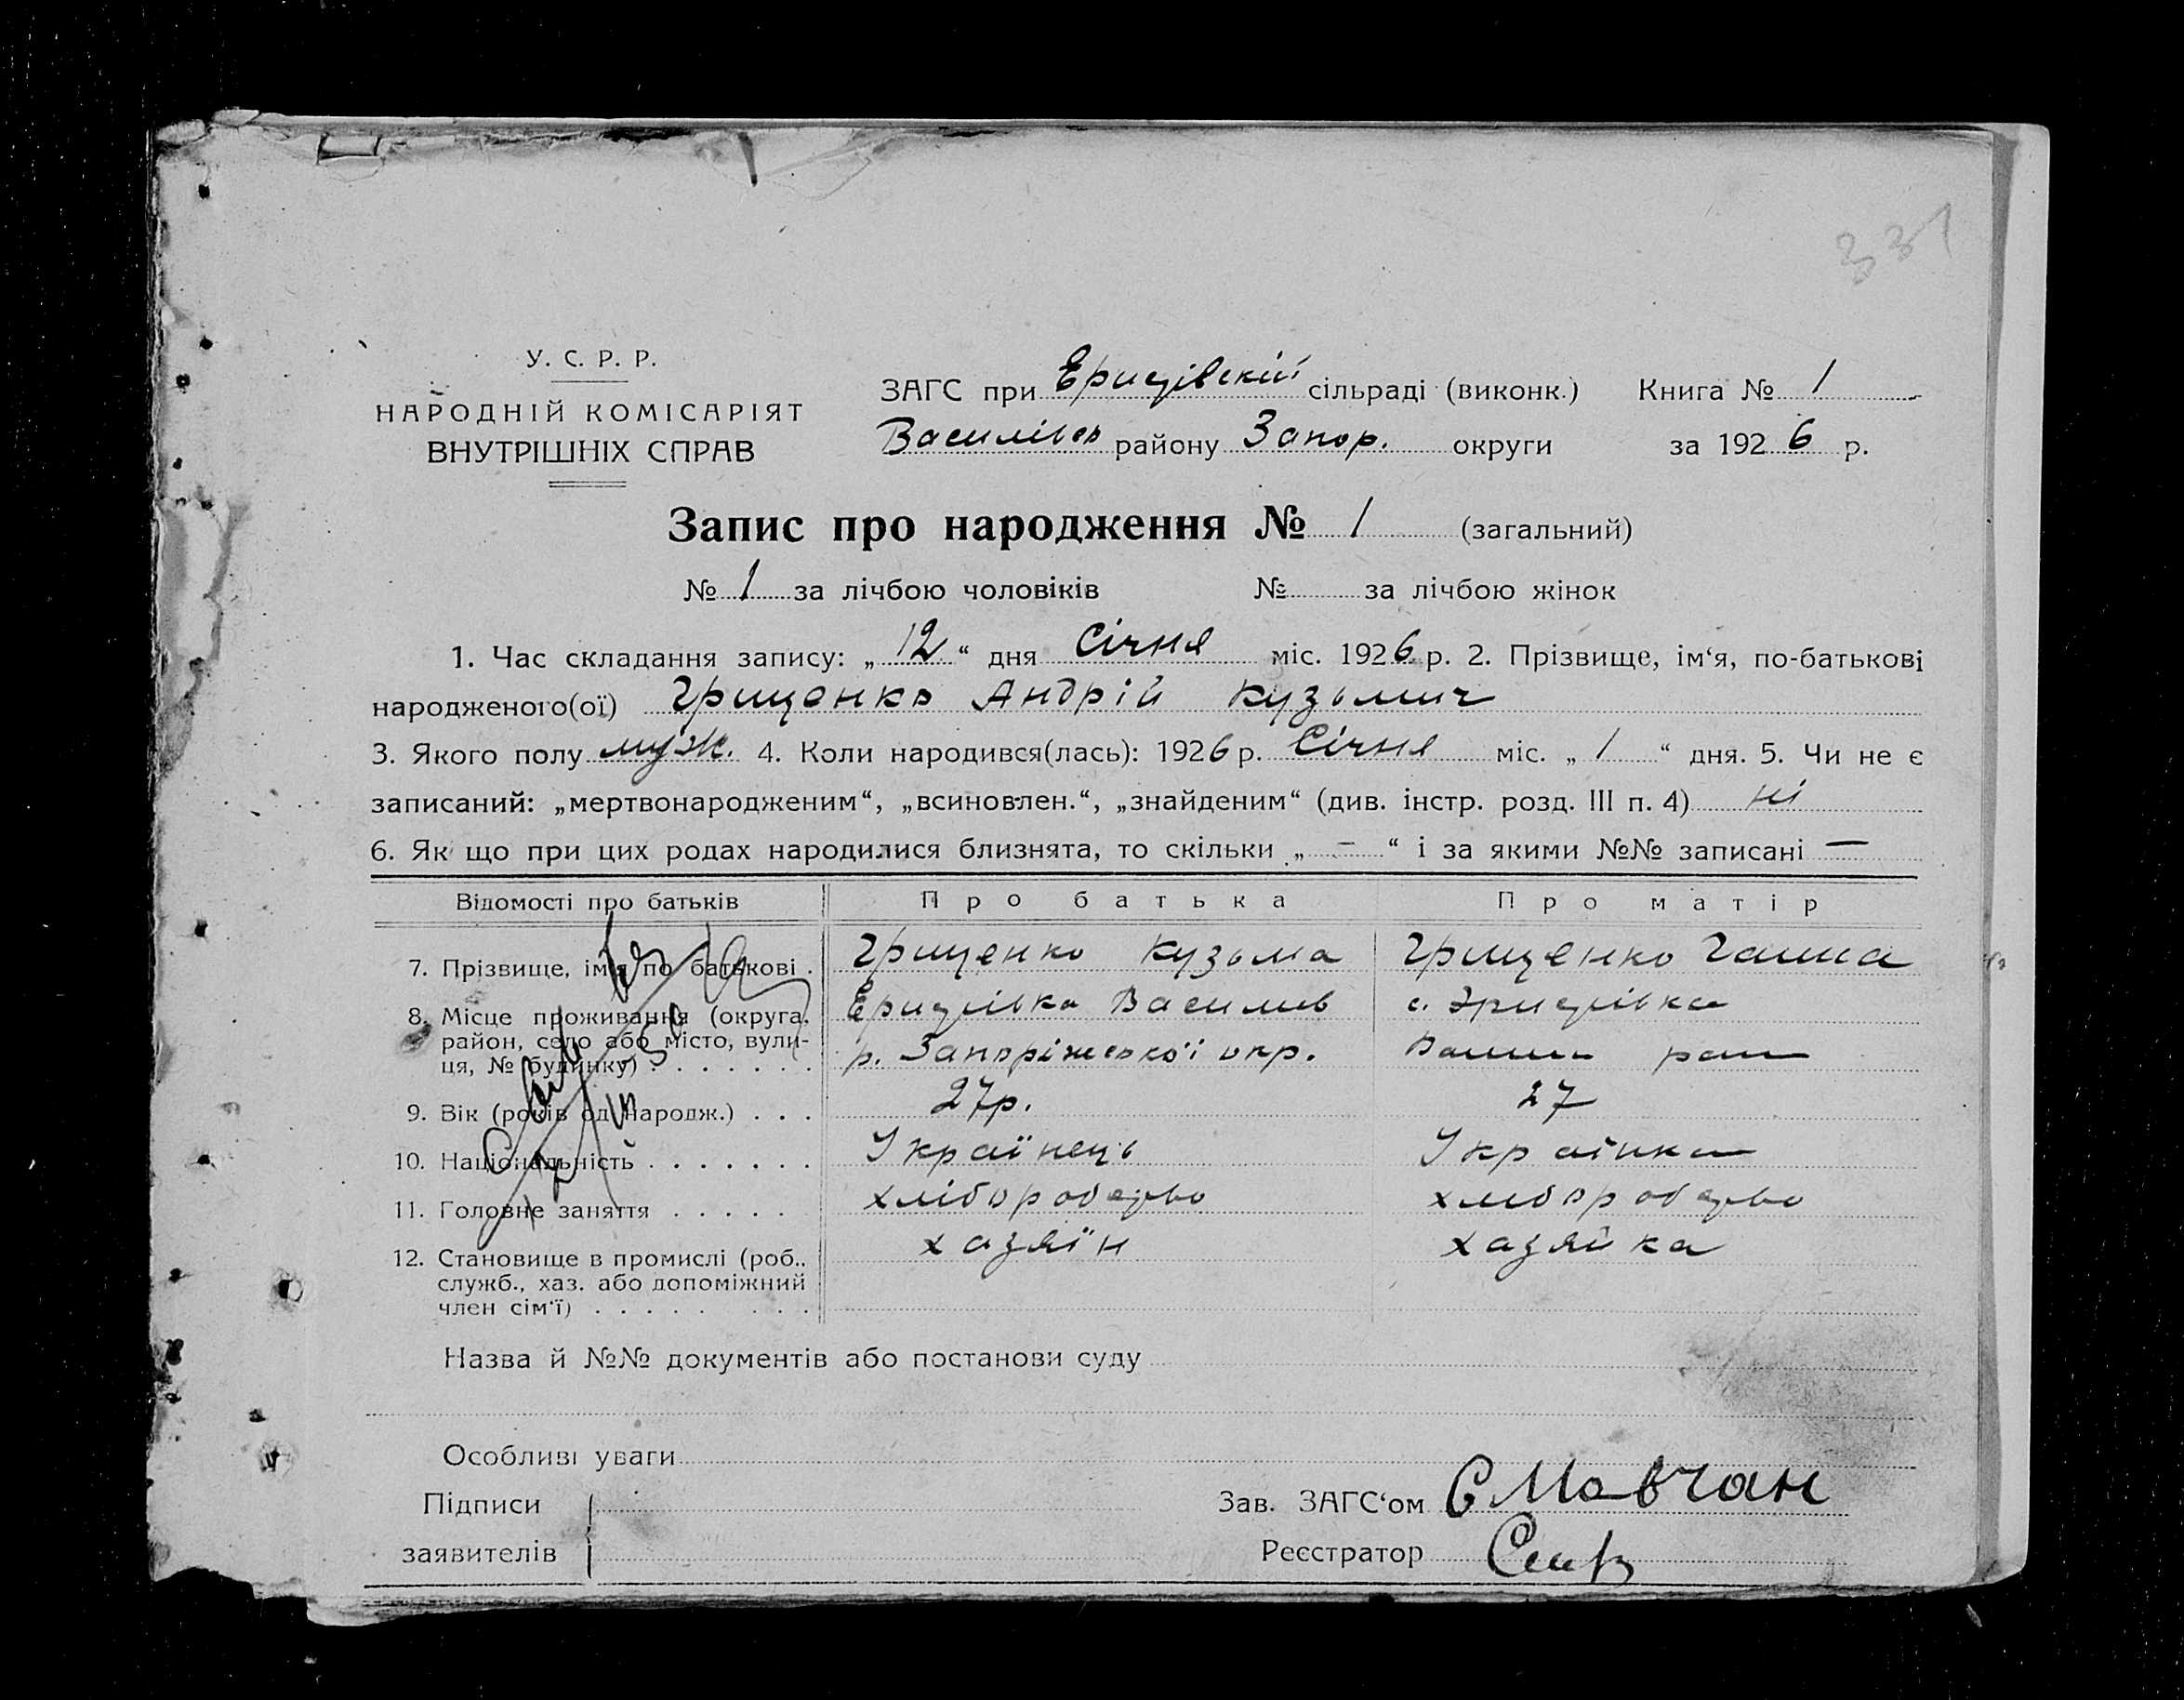 331
У. С. Р. Р.
НАРОДНІЙ КОМІСАРІЯТ
ВНУТРІШНІХ СПРАВ
ЗАГС при Еристівскій сільраді (виконк.) Книга № 1
Василівсь району Запор. округи за 1926 р.
Запис про народження № 1 (загальний)
№ 1 за лічбою чоловіків № за лічбою жінок
1. Час складання запису: „12“ дня Січня міс. 1926 р. 2. Прізвище, ім‘я, по-батькові
народженого(ої) Грищенко Андрій Кузьмич
3. Якого полу муж. 4. Коли народився(лась): 1926 р. Січня міс. „1“ дня. 5. Чи не є
записаний: „мертвонародженим“, „всиновлен.“, „знайденим“ (див. інстр. розд. III п. 4) ні
6. Як що при цих родах народилися близнята, то скільки „ – “ і за якими №№ записані —
Відомості про батьків Про батька Про матір
7. Прізвище, ім‘я по батькові . Грищенко Кузьма Грищенко Ганна
8. Місце проживання (округа, район, село або місто, вулиця, № будинку) . . . . . . . Еристівка Василів с. Эристівка
р. Запоріжської окр.
9. Вік (років од народж.) . . . 27р. 27
10. Національність . . . . . . . Українець Українка
11. Головне заняття . . . . . хліборобство хліборобство
12. Становище в промислі (роб., служб., хаз. або допоміжний член сім‘ї) . . . . . . . . хазяїн хазяйка
Назва й №№ документів або постанови суду
Особливі уваги
Підписи
заявителів
Зав. ЗАГС‘ом С Мовчан
Реєстратор